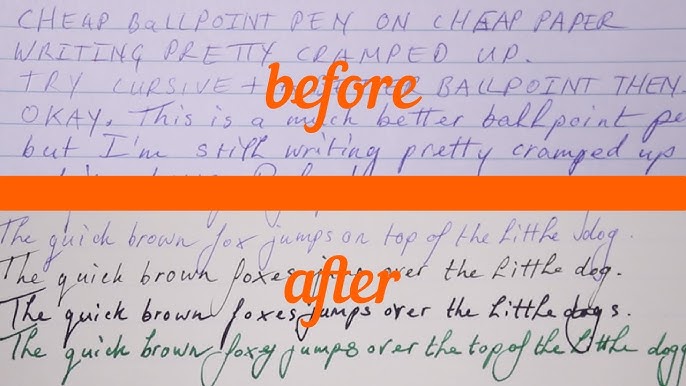 CHEAP BaLLPOINT PEN ON CHEAP PAPER
WRITING PRETTY CRAMPED UP.
before
TRY CURSIVE + BALLPOINT THEN.
OKAY. This is a much better ballpoint pe
but I'm still writing pretty cramped up
The quick brown fox jumps on top of the little dog.
The quick brown foxes over the little dog.
after
The quick brown foxes jumps over the little dogs.
The quick brown foxes jumps over the top of the little dogg